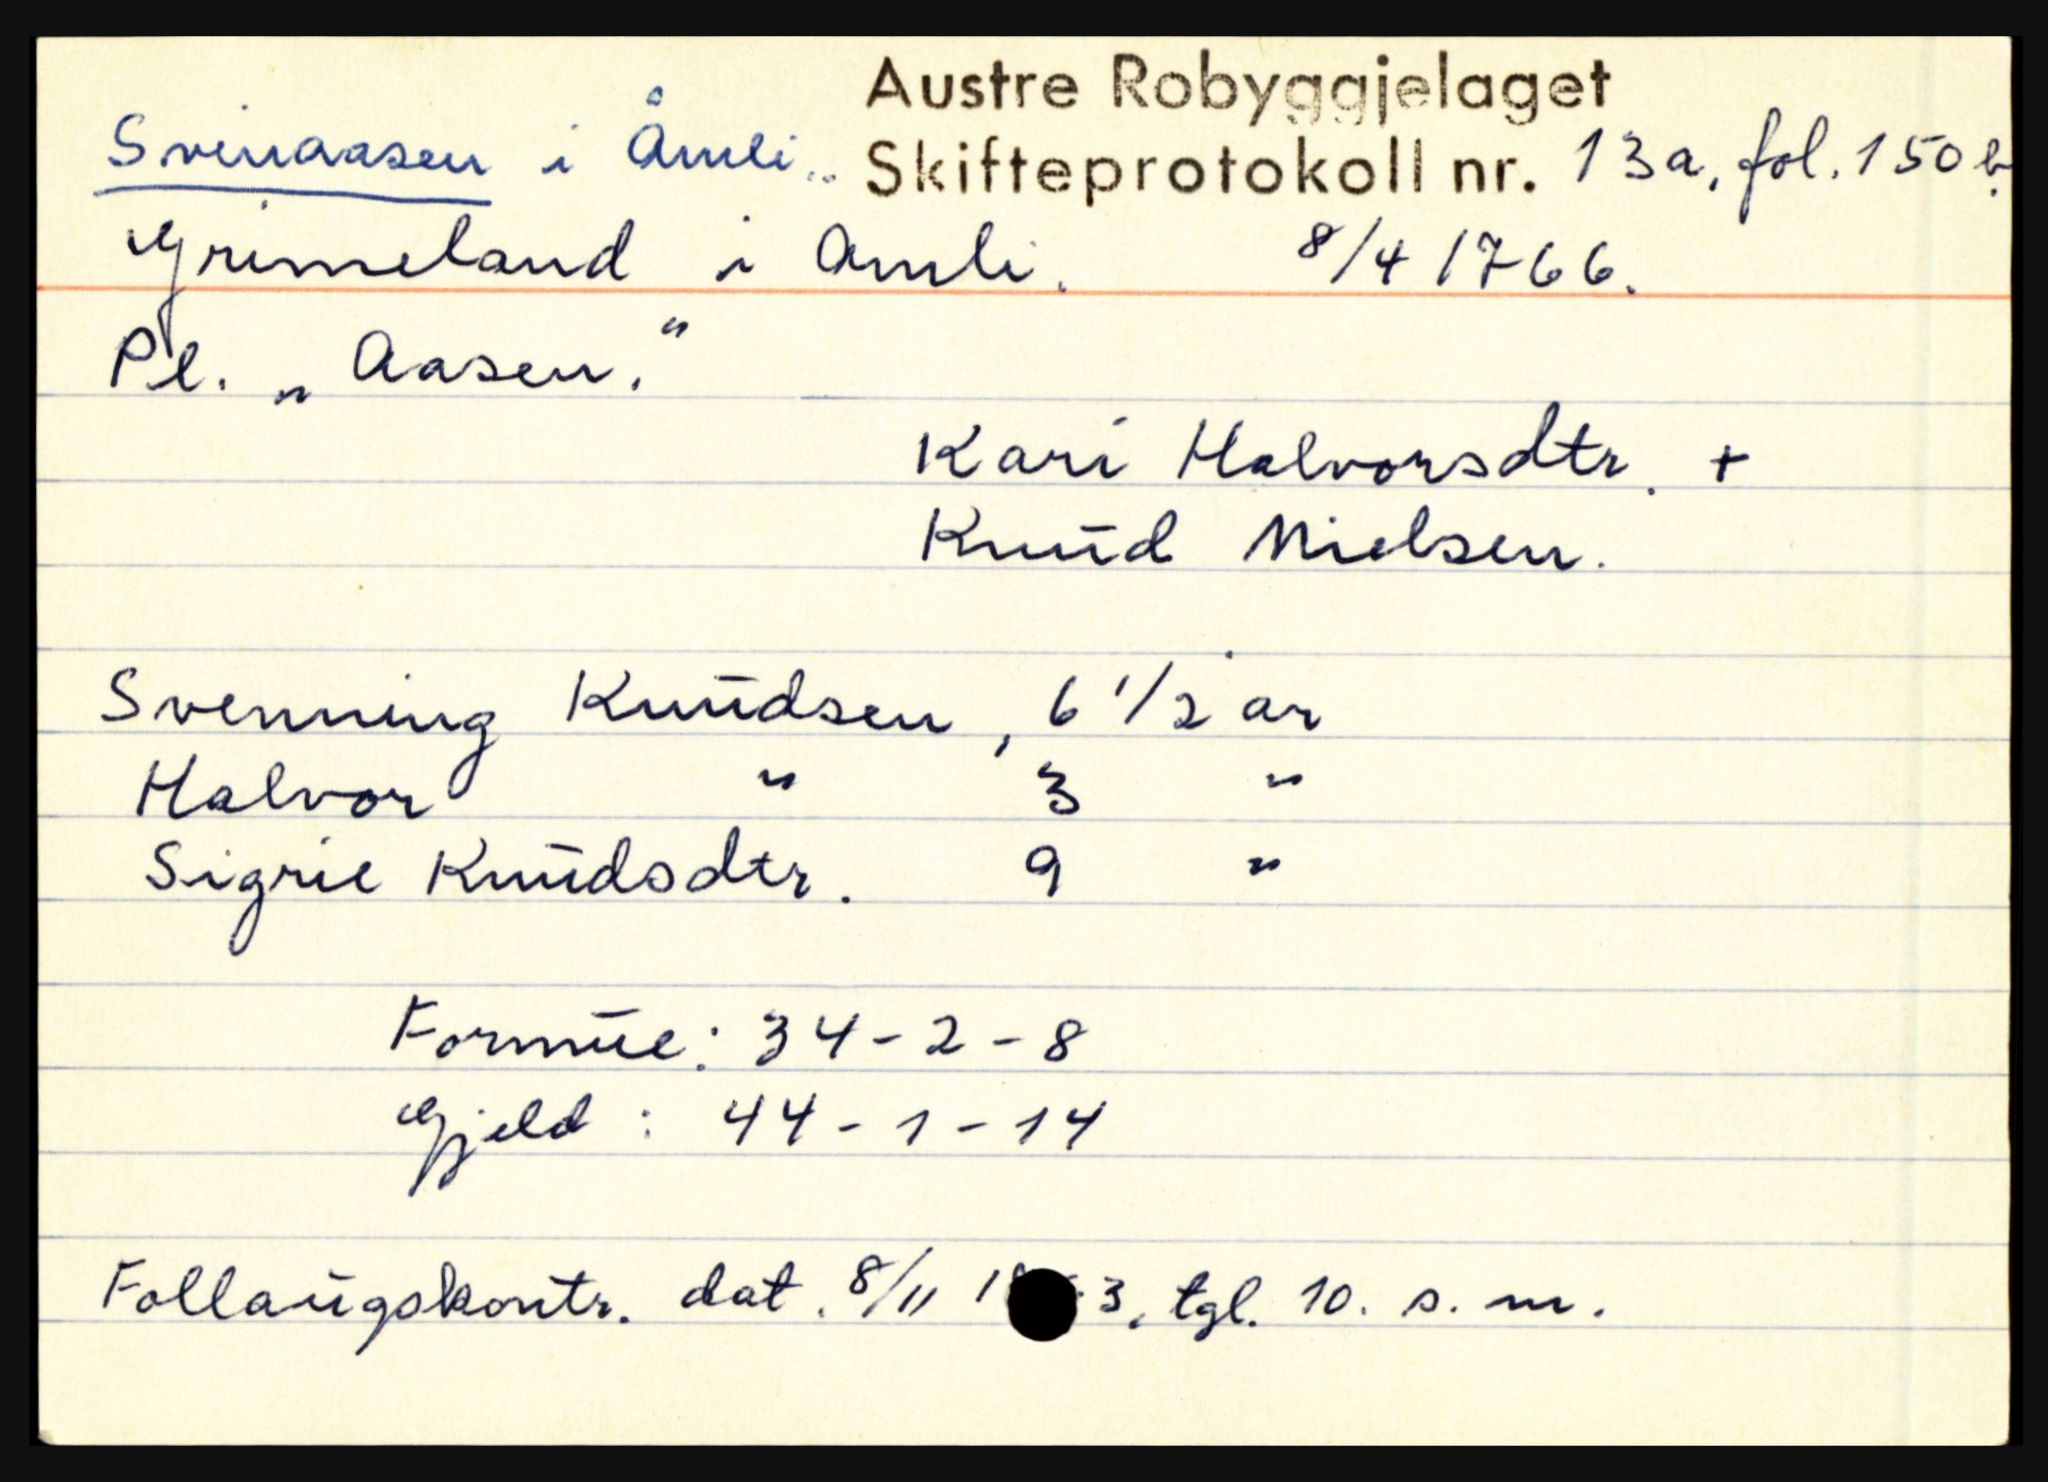 Austre Robyggjelaget
Svinaasen i Åmli.. Skifteprotokoll nr. 13a, fol. 150b.
Grimeland i Amli. 8/4 1766.
Pl. „Aasen."
Kari Halvorsdtr. +
Knud Nielsen.
Svenning Knudsen, 6 1/2 år
Halvor " 3 "
Sigrie Knudsdtr. 9 "
Formue: 34-2-8
Gjeld: 44-1-14
Follaugskontr. dat. 8/11 3, tgl. 10. s. m.